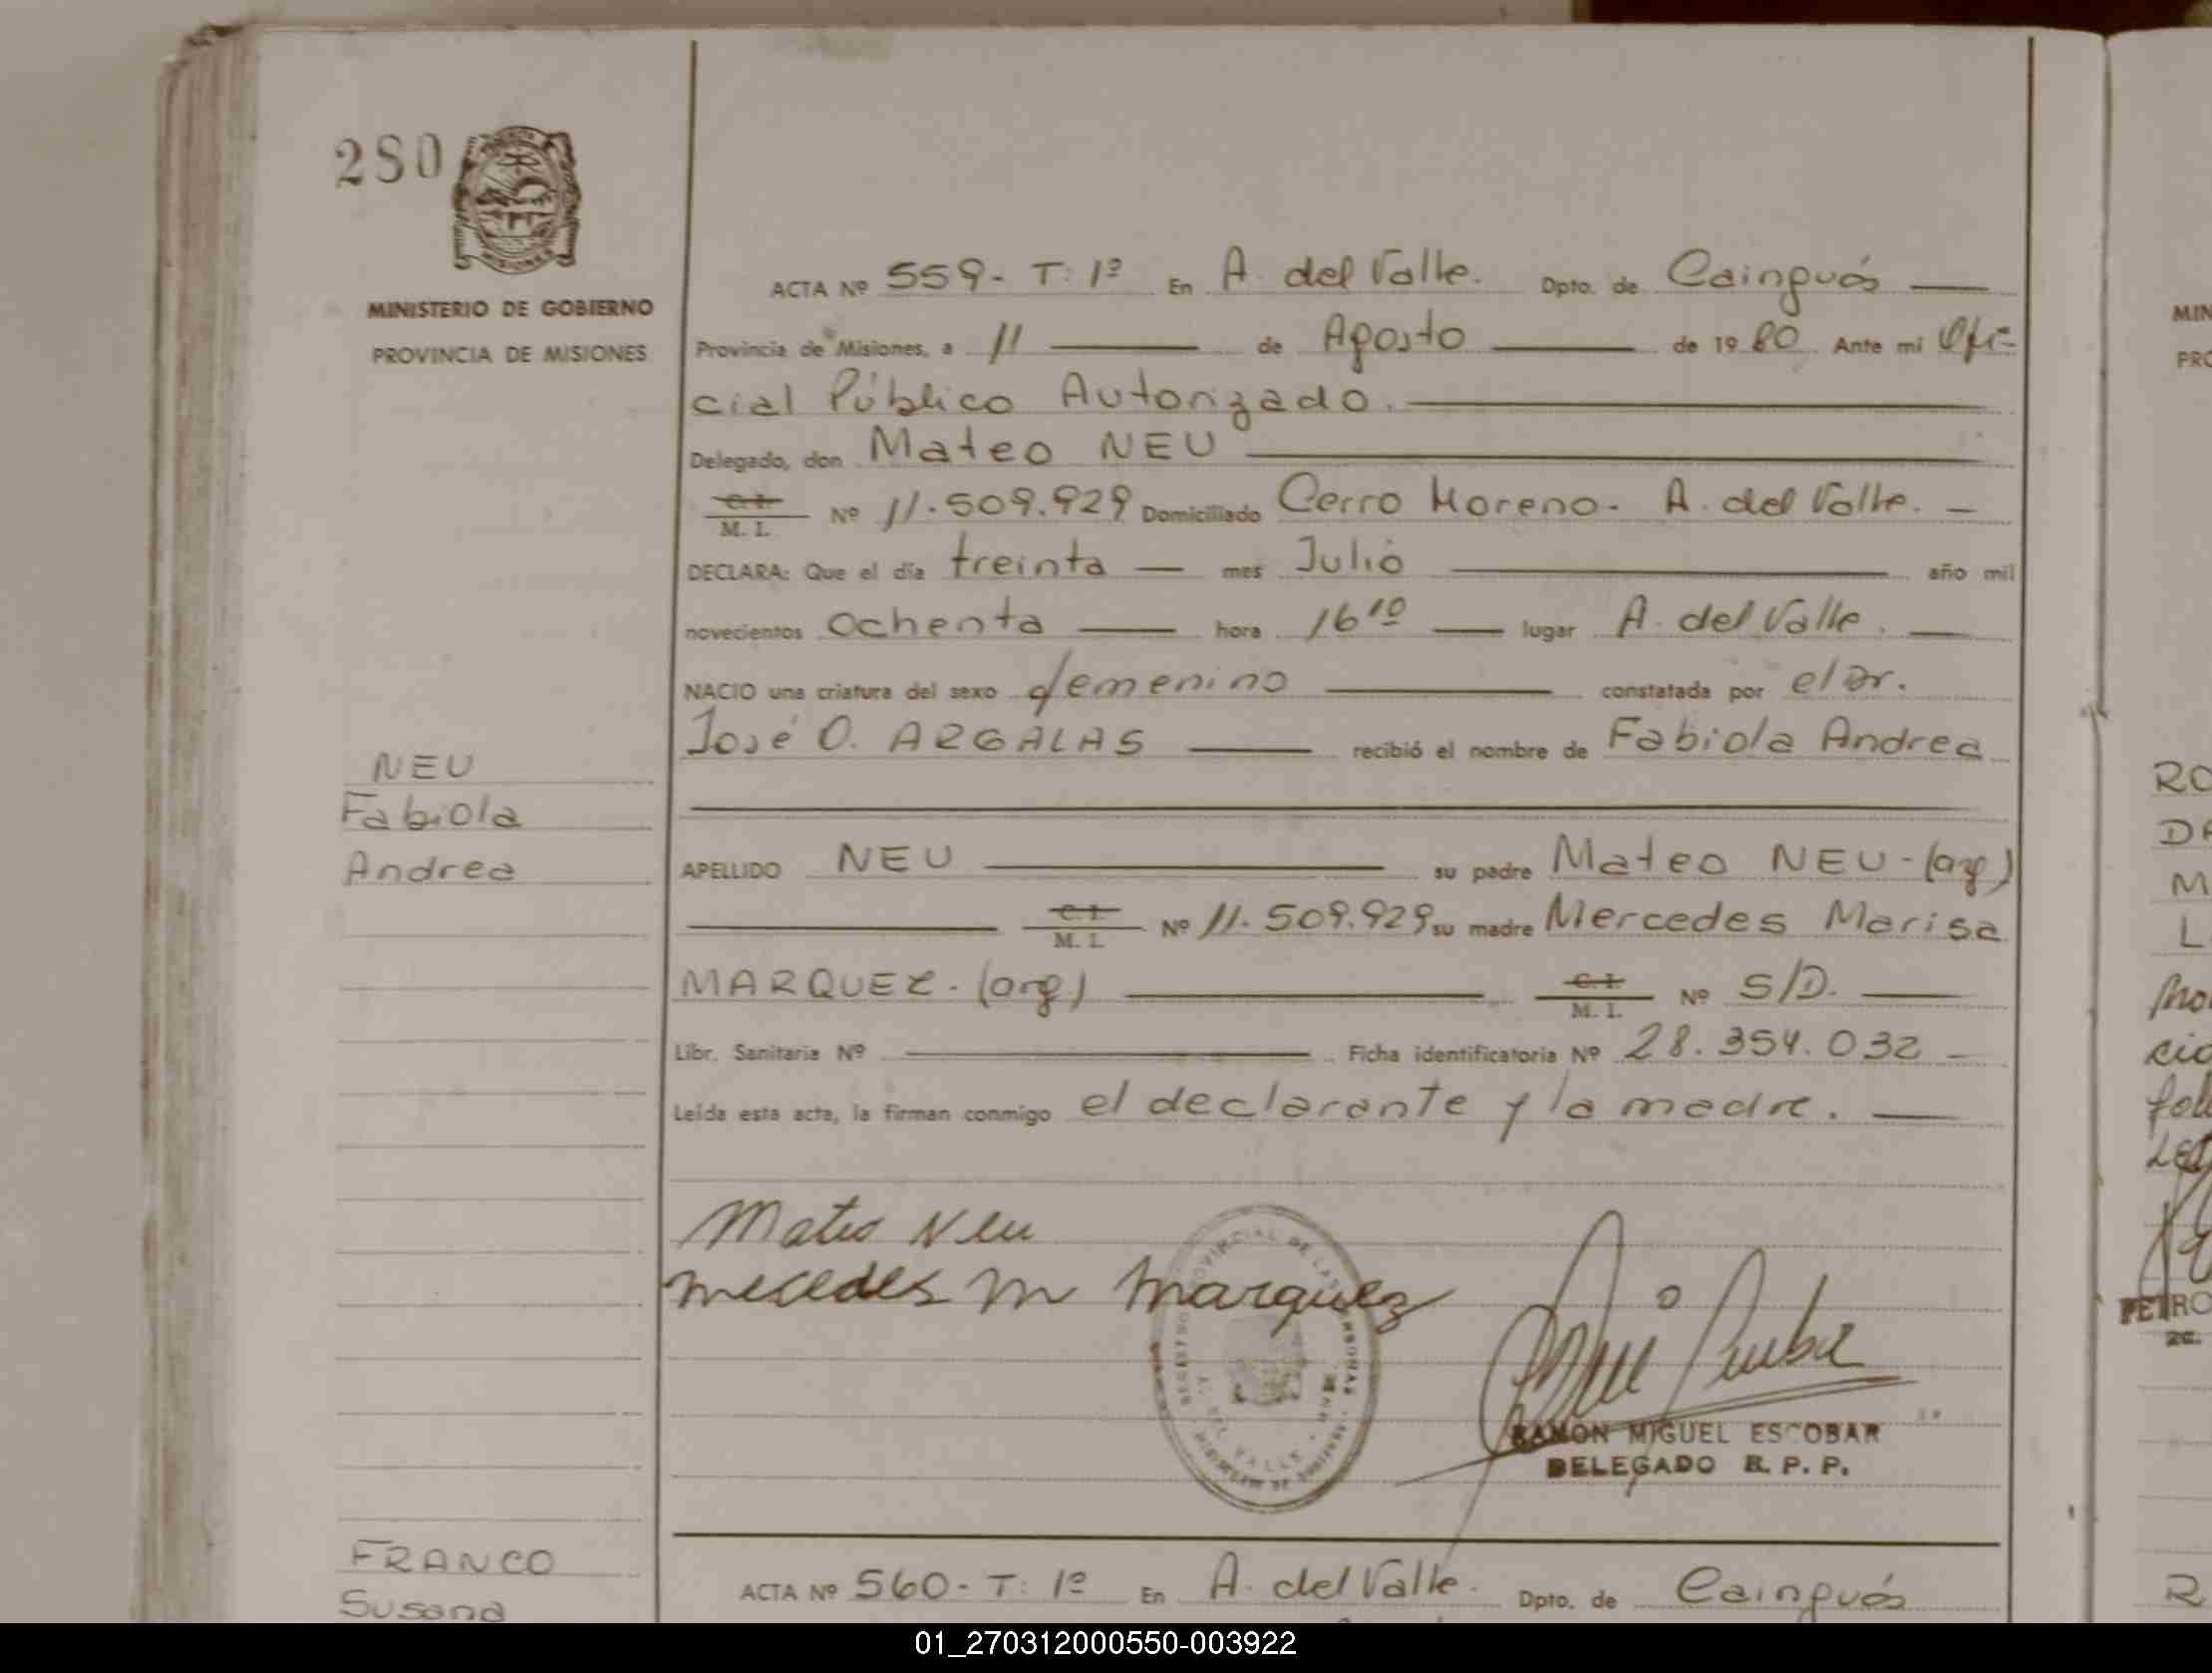 280
MINISTERIO DE GOBIERNO
PROVINCIA DE MISIONES
ACTA Nº 559- T: 1º En A. del Valle. Dpto. de Cainguás
Provincia de Misiones, a 11 de Agosto de 1980 Ante mi Ofi=
cial Público Autorizado.
Delegado, don Mateo NEU
C.I. M. I. Nº 11.509.929 Domiciliado Cerro Moreno- A. del Valle. -
DECLARA: Que el día treinta mes Julio año mil
novecientos ochenta hora 16 10 lugar A. del Valle.
NACIO una criatura del sexo femenino constatada por el Dr.
José O. ARGALAS recibió el nombre de Fabiola Andrea
NEU
Fabiola
Andrea
APELLIDO NEU su padre Mateo NEU-(arg)
C.I. M. I. Nº 11.509.929 su madre Mercedes Marisa
MARQUEZ.(arg) C.I. M. I. Nº S/D.
Libr. Sanitaria Nº Ficha identificatoria Nº 28.354.032
Leída esta acta, la firman conmigo el declarante y la madre.
Mateo Neu
mecedes m marquez
REGISTRO PROVINCIAL DE LAS PERSONAS
DEL VALLE
RAMON MIGUEL ESCOBAR
DELEGADO R. P. P.
FRANCO
Susana
ACTA Nº 560- T: 1º En A. del Valle. Dpto. de Cainguás
MIN
PRO
RO
DA
M
L
cio
PETRO
R
01_270312000550-003922